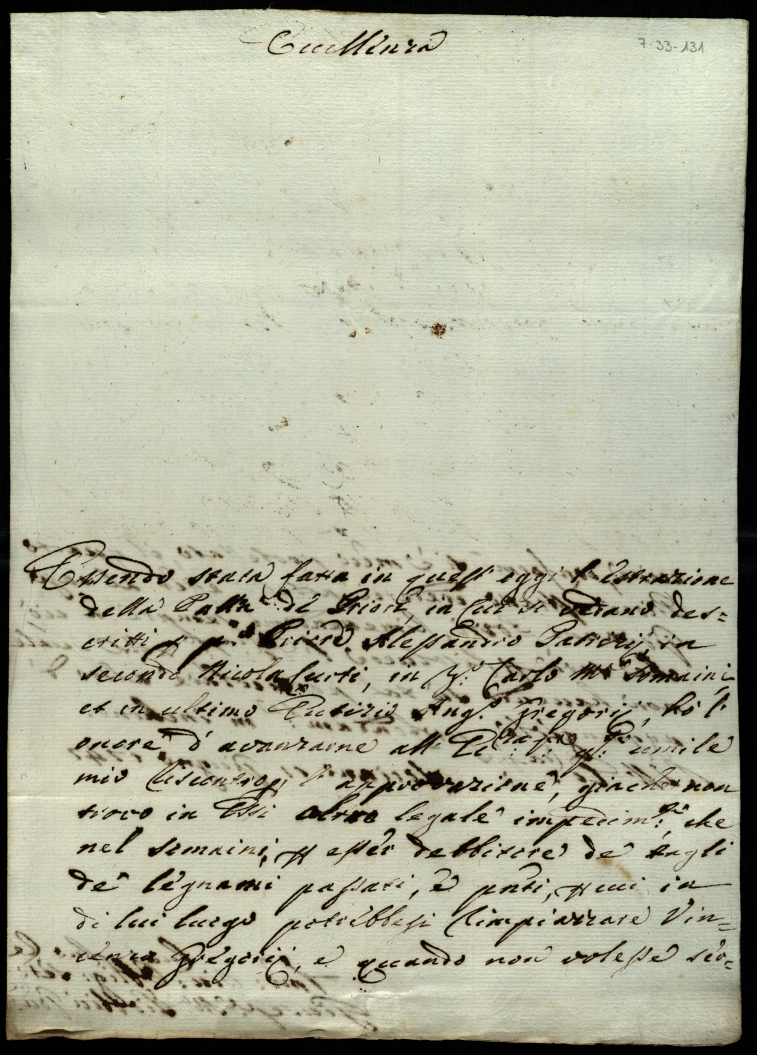 7-33-131
Eccellenza
Essendo stata fatta in quest'oggi l'estrazione
della Palla de' Priori, in cui si vedano des=
critti p. p.º Priore Alessandro Patrizj, in
secondo Nicola Curti, in 3º Carlo Mª Simaini,
et in ultimo Eutizio Ang.º Gregorij, hò l'
onore d'avanzarne all' umile
mio riscontro, l'approvazione, giache non
trovo in Essi altro legale impedim.to che
nel Simaini, p esser debbitore de Tagli
de' legnami passati, e pnti, p cui in
di lui luogo potrebbesi rimpiazzare Vin=
cenzo Gregorij, e quando non volesse ser=